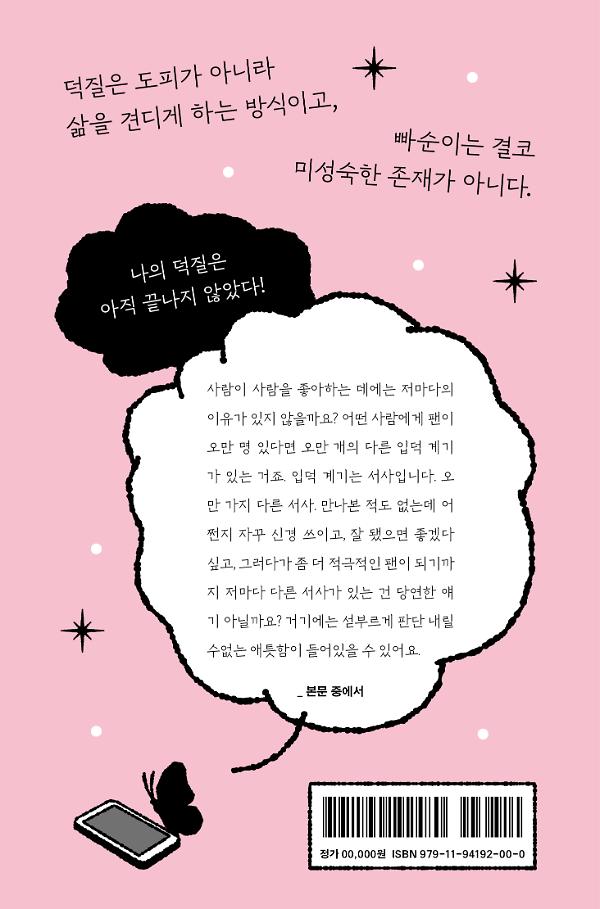 덕질은 도피가 아니라
삶을 견디게 하는 방식이고,
빠순이는 결코
미성숙한 존재가 아니다.
나의 덕질은
아직 끝나지 않았다!
사람이 사람을 좋아하는 데에는 저마다의
이유가 있지 않을까요? 어떤 사람에게 팬이
오만 명 있다면 오만 개의 다른 입덕 계기
가 있는 거죠. 입덕 계기는 서사입니다. 오
만 가지 다른 서사. 만나본 적도 없는데 어
쩐지 자꾸 신경 쓰이고, 잘 됐으면 좋겠다
싶고, 그러다가 좀 더 적극적인 팬이 되기까
지 저마다 다른 서사가 있는 건 당연한 얘
기 아닐까요? 거기에는 섣부르게 판단 내릴
수없는 애틋함이 들어있을 수 있어요.
_ 본문 중에서
정가 00,000원 ISBN 979-11-94192-00-0